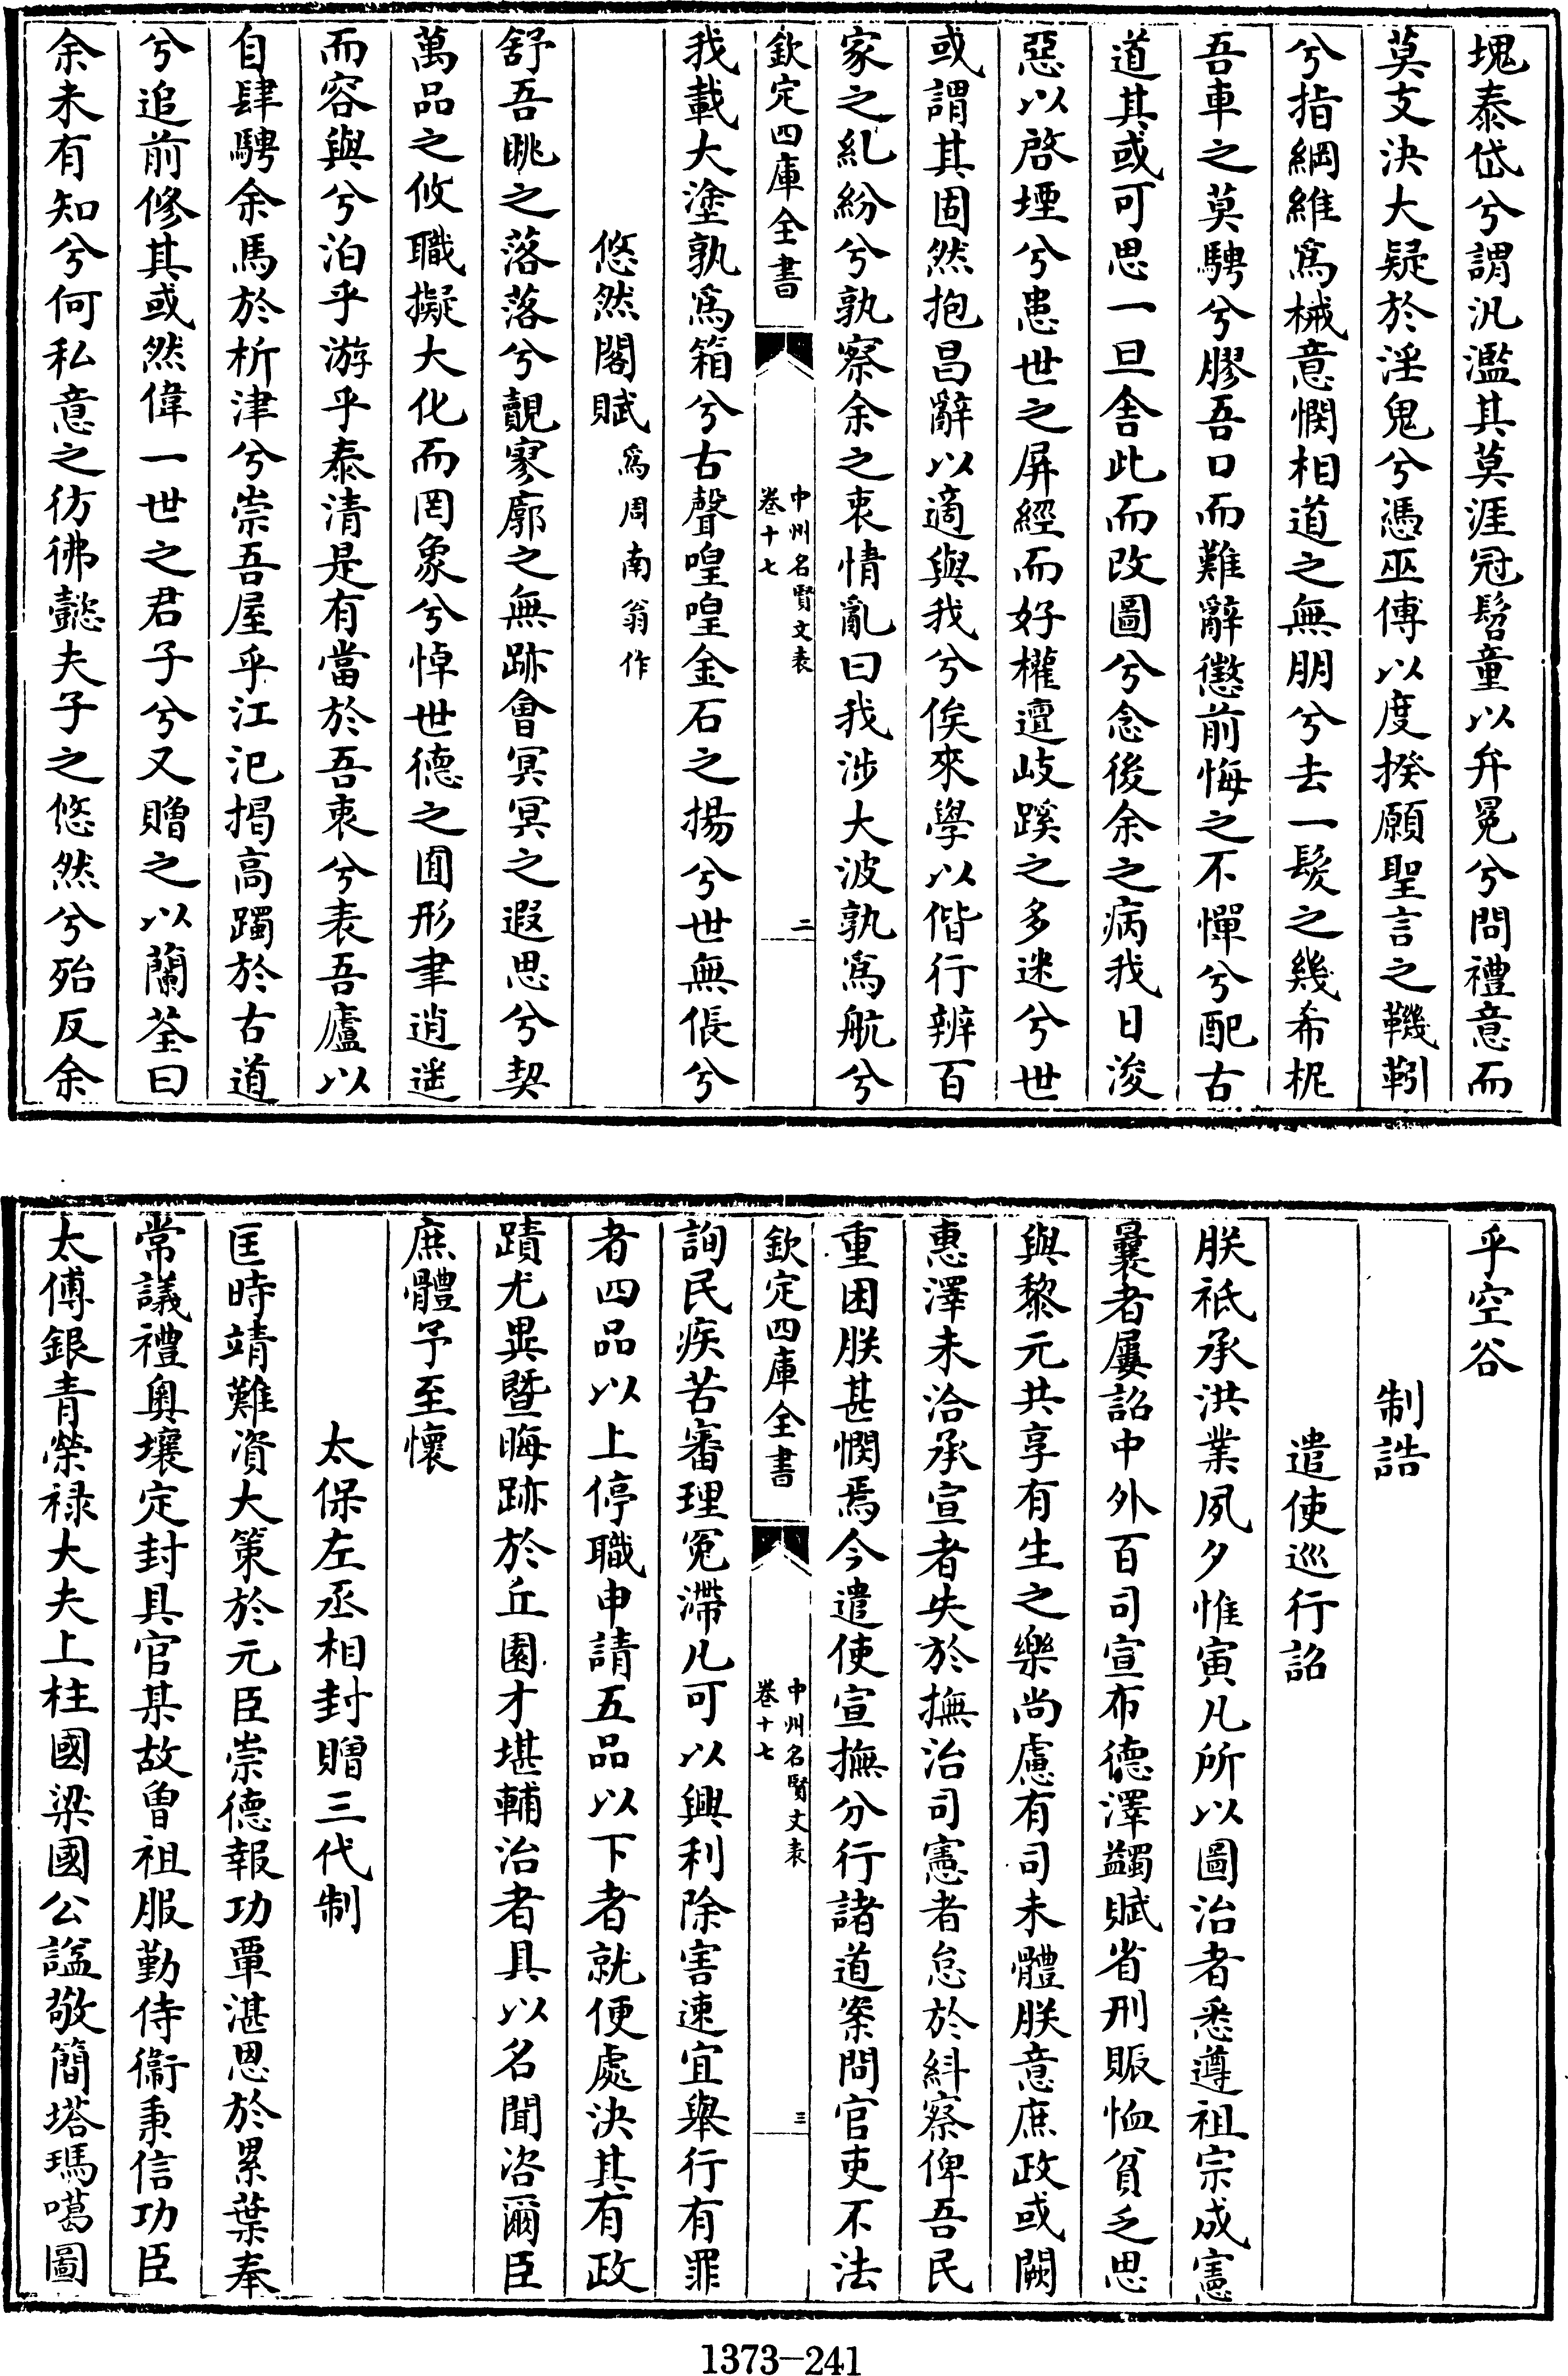 塊泰岱兮謂汎濫其莫涯冠髫童以弁冕兮問禮意而
莫支決大疑於淫鬼兮憑巫傅以度揆願聖言之鞿靷
兮指綱維爲械意憫相道之無朋兮去一髮之幾希柅
吾車之莫騁兮膠吾口而難辭懲前悔之不憚兮配古
道其或可思一旦舍此而改圖兮念後余之病我日浚
惡以啓堙兮患世之屏經而好權邅岐蹊之多迷兮世
或謂其固然抱昌辭以適與我兮俟來學以偕行辨百
家之糺紛兮孰察余之衷情亂曰我涉大波孰爲航兮
欽定四庫全書
中州名賢文表
卷十七
二
我載大塗孰爲箱兮古聲喤喤金石之揚兮世無倀兮
悠然閣賦爲周南翁作
舒吾眺之落落兮覿寥廓之無跡會冥冥之遐思兮契
萬品之攸職擬大化而罔象兮悼世德之囿形聿逍遥
而容與兮泊乎游乎泰清是有當於吾衷兮表吾廬以
自肆騁余馬於析津兮崇吾屋乎江汜揭高躅於古道
兮追前修其或然偉一世之君子兮又贈之以蘭荃曰
余未有知兮何私意之彷彿懿夫子之悠然兮殆反余
乎空谷
制誥
遣使巡行詔
朕祇承洪業夙夕惟寅凡所以圖治者悉遵祖宗成憲
曩者屢詔中外百司宣布德澤蠲賦省刑賑恤貧乏思
與黎元共享有生之樂尚慮有司未體朕意庶政或闕
惠澤未洽承宣者失於撫治司憲者怠於糾察俾吾民
重困朕甚憫焉今遣使宣撫分行諸道案問官吏不法
欽定四庫全書
中州名賢文表
卷十七
三
詢民疾苦審理冤滯凡可以興利除害速宜舉行有罪
者四品以上停職申請五品以下者就便處決其有政
蹟尤異暨晦跡於丘園才堪輔治者具以名聞咨爾臣
庶體予至懷
太保左丞相封贈三代制
匡時靖難資大策於元臣崇德報功覃湛恩於累葉奉
常議禮奥壤定封具官某故曽祖服勤侍衞秉信功臣
太傅銀青榮禄大夫上柱國梁國公謚敬簡塔瑪噶圖
1373-241